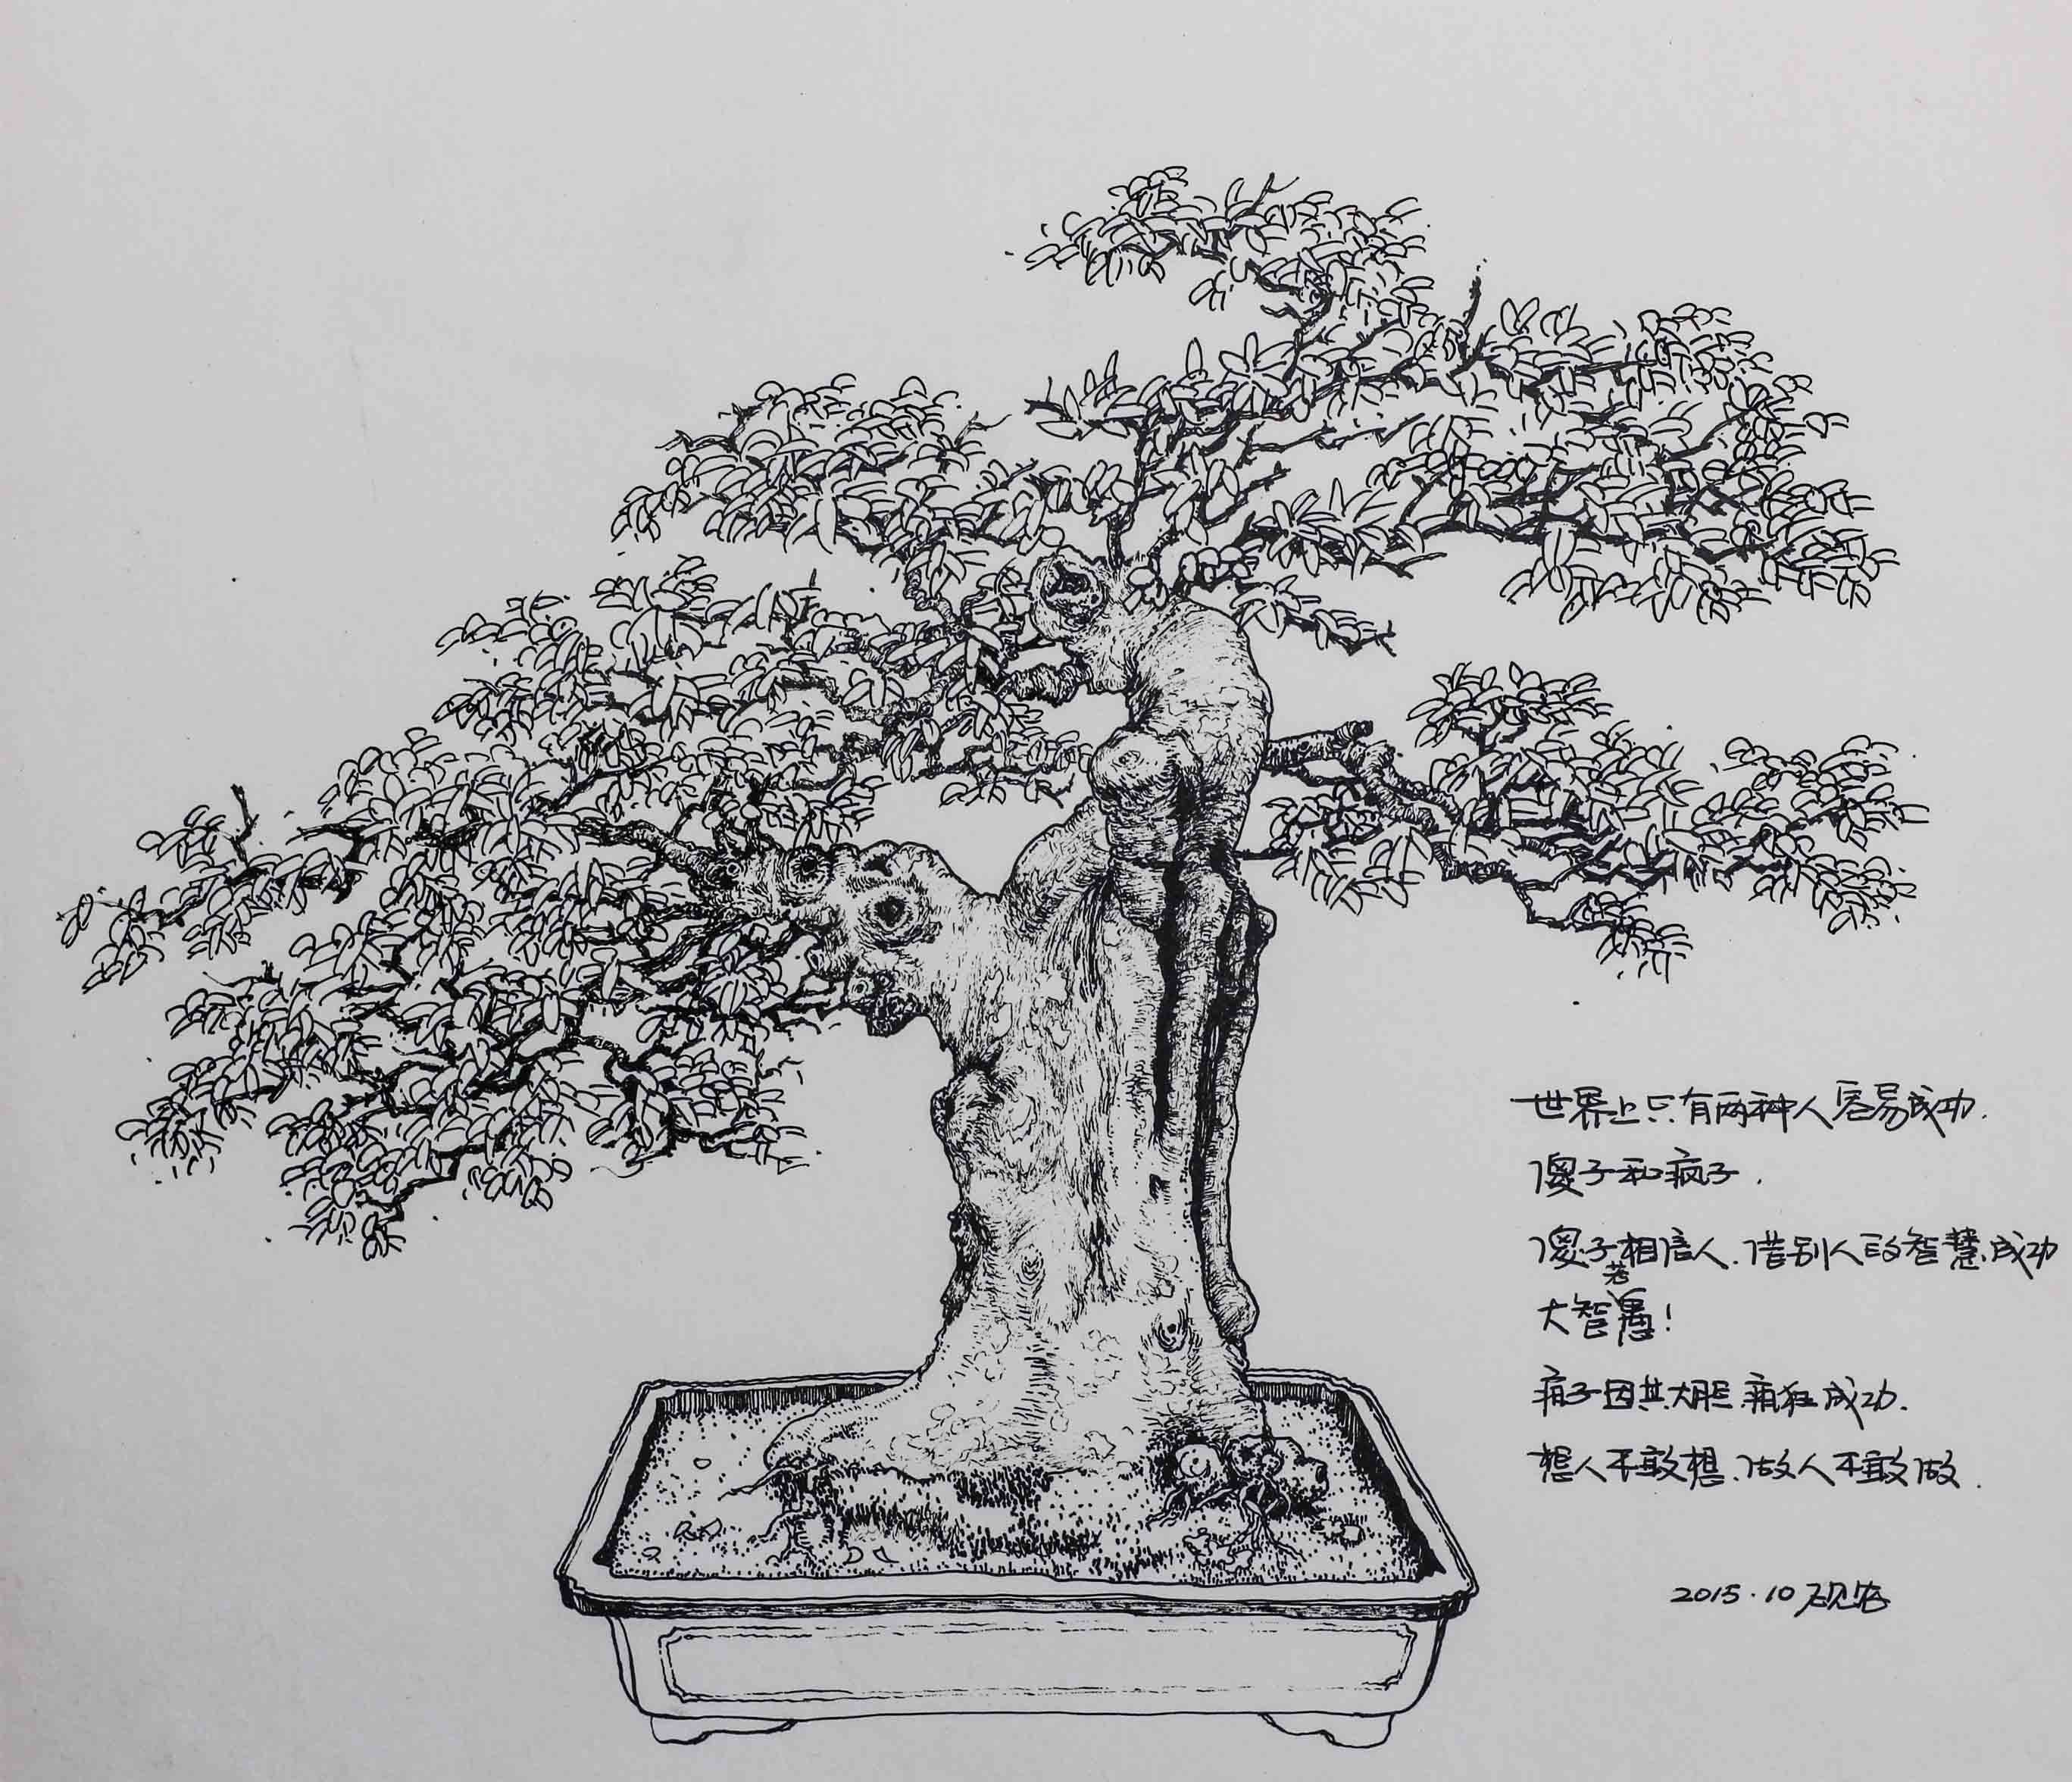 世界上只有两种人容易成功.
傻子和疯子.
傻子相信人.借别人的智慧成功
大智若愚!
疯子因其大胆疯狂成功.
想人不敢想.做人不敢做.
2015.10